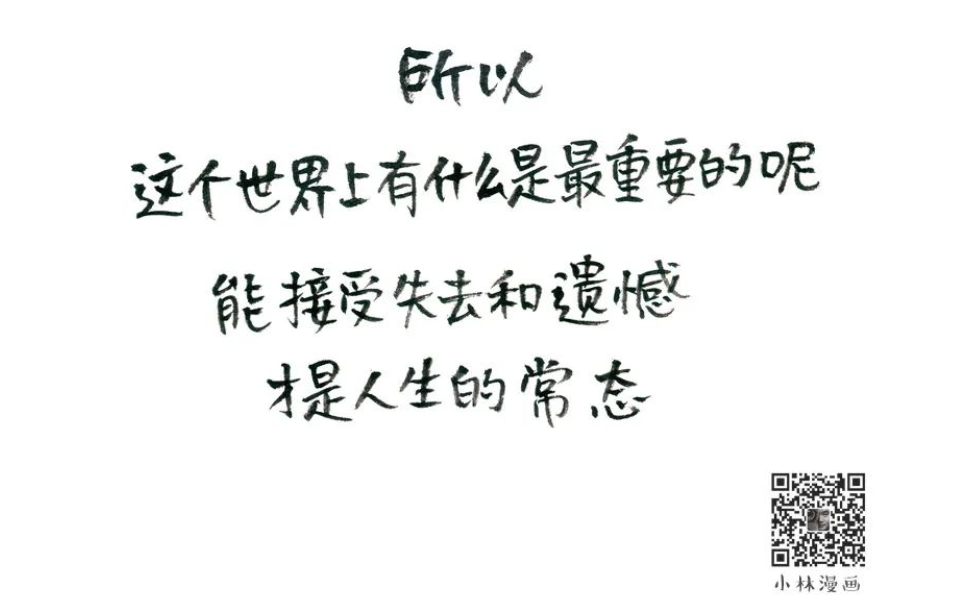 所以
这个世界上有什么是最重要的呢
能接受失去和遗憾
才是人生的常态
小林漫画